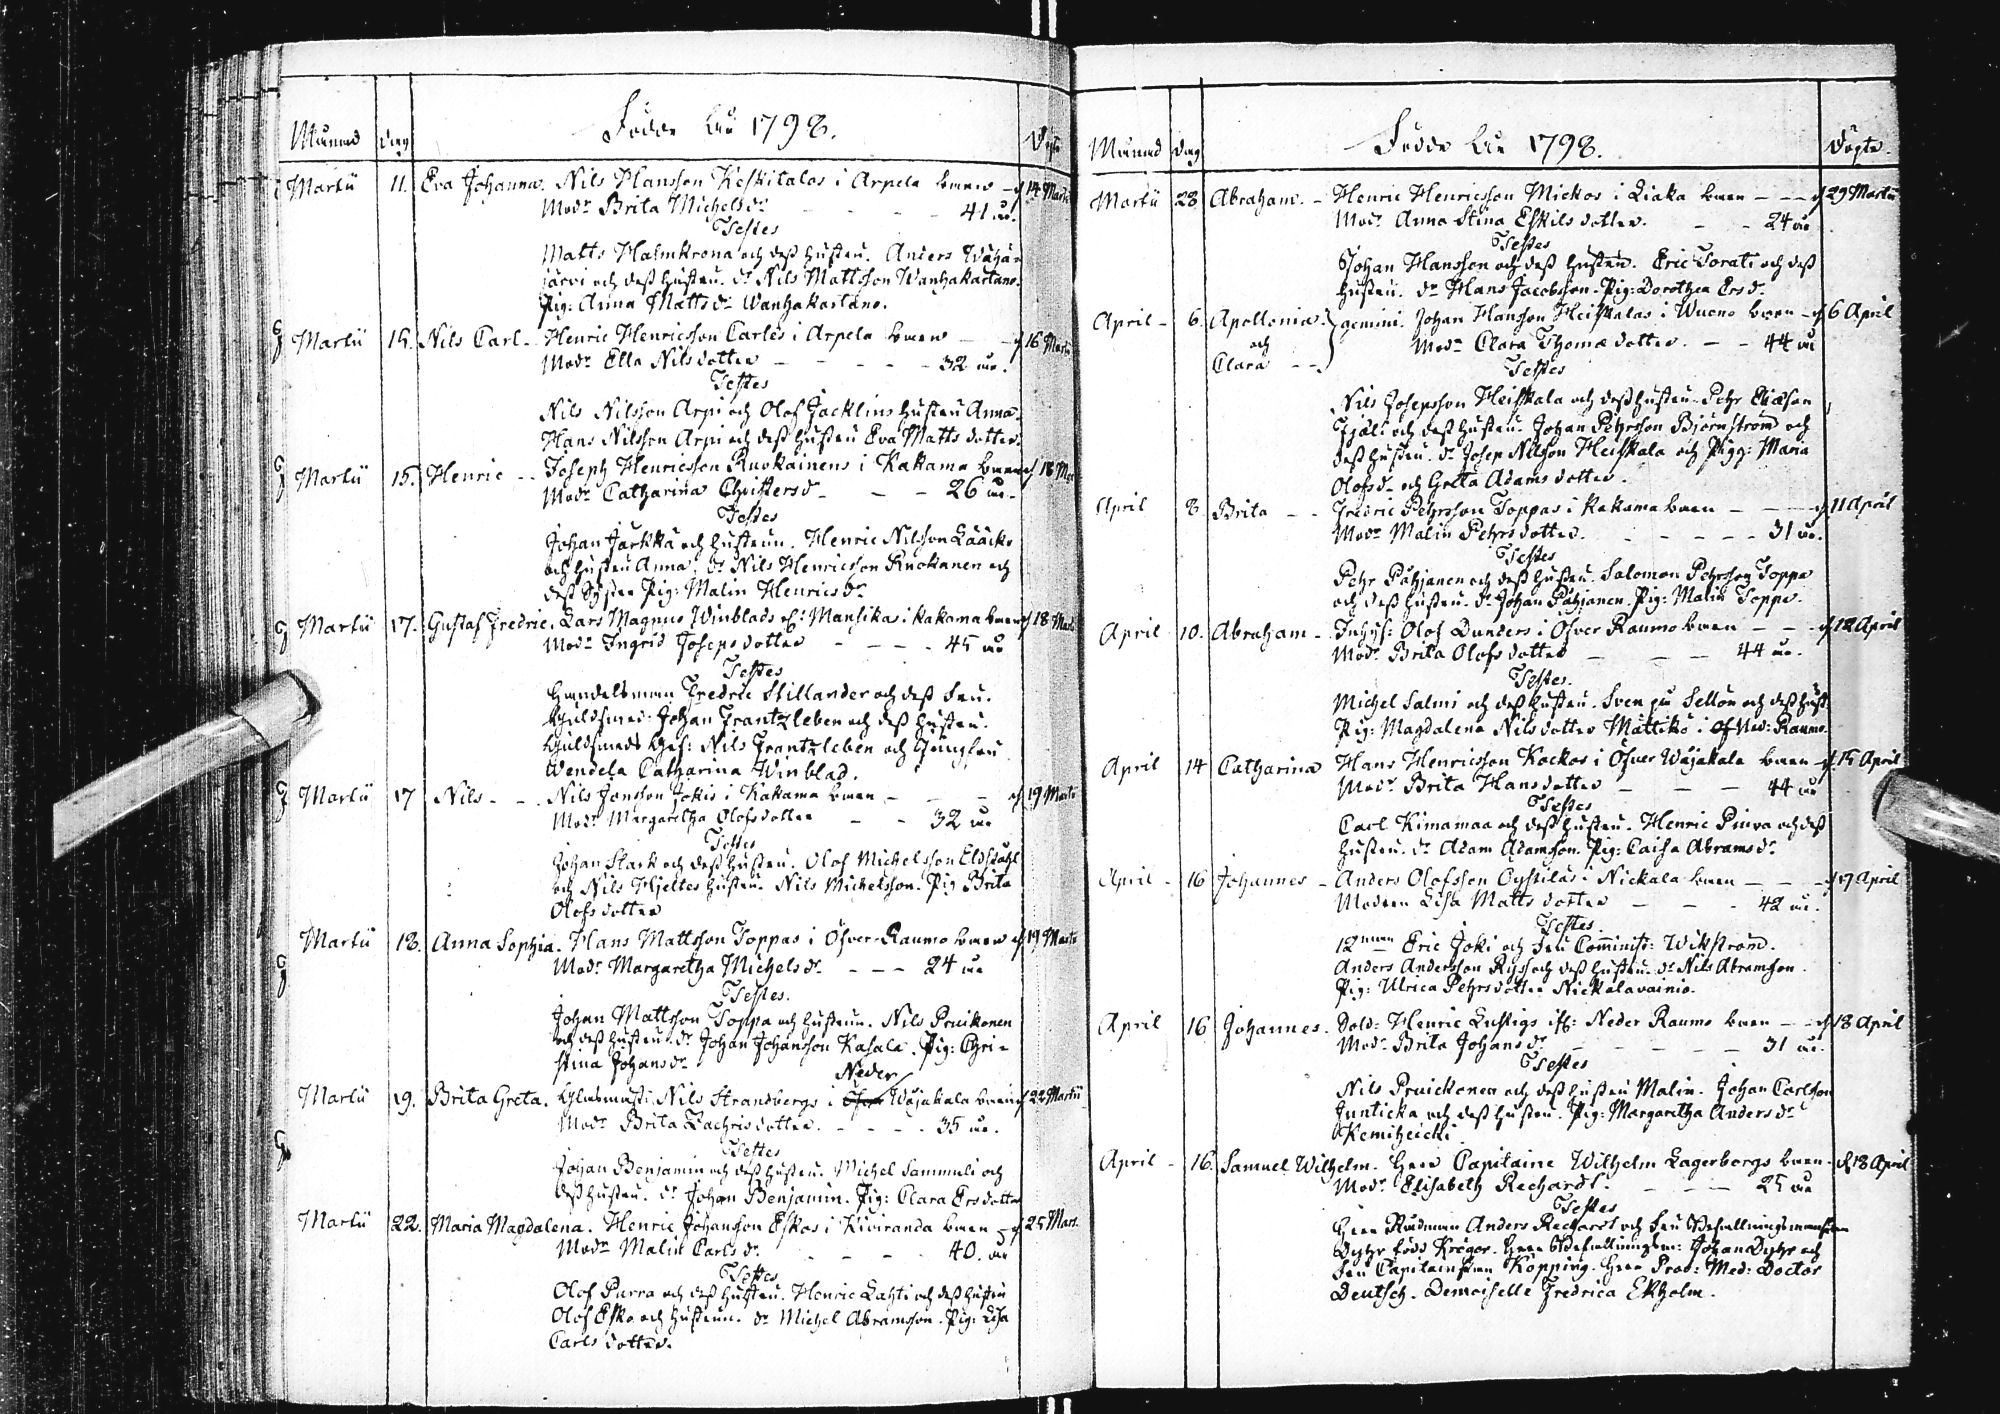 Födde År 1798.
Månad Dag Döpte
Martii 11. Eva Johanna. Nils Hansson Keskitalos i Arpela barn d 14 Martii
Modr Brita Michelsdr 41 år.
Testes
Matts Halmkrona och dess hustru. Anders Wähä-
järvi och dess hustru. dr Nils Mattsson Wanhakartano.
Pig: Anna Mattsdr Wanhakartano.
Martii 15. Nils Carl Henric Henricsson Carles i Arpela barn d 16 Martii
Modr Ella Nilsdotter 32 år.
Testes
Nils Nilsson Arpi och Olof Jacklins hustru Anna.
Hans Nilsson Arpi och dess hustru Eva Mattsdotter.
Martii 15. Henric Joseph Henricsson Ruokainens i Kakama barn d 18 Mar
Modr Catharina Christersdr 26 år.
Testes
Johan Jarkkä och hustrun. Henric Nilsson Lääcko
och hustru Anna. dr Nils Henricsson Ruokanen och
dess Syster Pig: Malin Henricsdr
Martii 17. Gustaf Fredric. Lars Magnus Winblads Mansika i Kakama barn d 18 Mart
Modr Ingrid Josepsdotter 45 år
Testes
Handelsman Fredric Stillander och dess fru.
Guldsmed: Johan Frantzleben och dess hustru.
Guldsmeds Ges: Nils Frantzleben och Jungfru
Wendela Catharina Winblad.
Martii 17 Nils Nils Jonsson Jokis i Kakama barn d 19 Martii
Modr Margaretha Olofsdotter 32 år
Testes
Johan Stark och dess hustru. Olof Michelsson Eldstahl
och Nils Hjeltes hustru. Nils Michelsson. Pig Brita
Olofsdotter
Martii 18. Anna Sophia. Hans Mattsson Toppas i Öfver-Raumo barn d 19 Martii
Modr Margaretha Michelsdr 24 år
Testes.
Johan Mattsson Toppa och hustrun. Nils Pruikonen
och dess hustru. dr Johan Johansson Kasala. Pig: Chri-
stina Johansdr
Neder
Martii 19. Brita Greta. Glasmäst: Nils Strandbergs i Öfver Wäjakala barn d 22 Martii
Modr Brita Zachrisdotter. 35 år.
Testes
Johan Benjamin och dess hustru. Michel Sammuli och
dess hustru. dr Johan Benjamin. Pig: Clara Ersdotter
Martii 22. Maria Magdalena. Henric Johansson Eskos i Kiviranda barn d 25 Mart.
Modr Malin Carlsdr 40. år
Testes
Olof Purra och dess hustru. Henric Lahti och dess hustru
Olof Esko och hustrun. dr Michel Abramsson. Pig: Lisa
Carlsdotter.
Födde År 1798.
Månad Dag Döpte.
Martii 28 Abraham. Henric Henricsson Mickos i Liaka barn d 29 Martii
Modr Anna Stina Eskilsdotter. 24 år
Testes
Johan Hansson och dess hustru. Eric Torati och dess
hustru. dr Hans Jacobsson. Pig: Dorothea Ersdr
April 6. Apollonia. gemini. Johan Hansson Heiskalas i Wuono barn d 6 April
och Modr Clara Thomædotter. 44 år
Clara
Testes
Nils Josepsson Heiskala och dess hustru. Pehr Eliæson
och dess hustru. Johan Pehrsson Björnström och
dess hustru. dr Josep Nilsson Heiskala och Pigg: Maria
Olofsdr och Greta Adamsdotter.
April 8 Brita Fredric Pehrsson Toppas i Kakama barn d 11 April
Modr Malin Pehrsdotter. 31 år.
Testes
Pehr Pähjanen och dess hustru. Salomon Pehrsson Toppa
och dess hustru. dr Johan Pähjanen. Pig: Malin Toppa.
April 10. Abraham Inhys: Olof Dunders i Öfver Raumo barn d 12 April
Modr Brita Olofsdotter 44 år.
Testes.
Michel Salmi och dess hustru. Sven på Sellön och dess hust:
Pig: Magdalena Nilsdotter Mattiko i Ned: Raumo.
April 14 Catharina Hans Henricsson Kockos i Öfver Wäjakala barn d. 15 April
Modr Brita Hansdotter 44 år
Testes
Carl Kimamaa och dess hustru. Henric Pinva och dess
hustru. dr Adam Adamsson. Pig: Caisa Abramsdr
April 16 Johannes Anders Olofsson Oystilas i Nickala barn d 17 April
Modren Lisa Mattsdotter 42 år.
Testes
12man Eric Joki och fru Comminist: Wikström.
Anders Andersson Ryss och dess hustru. dr Nils Abramsson.
Pig: Ulrica Pehrsdotter Nickalavainio.
April 16 Johannes. Sold: Henric Lustigs Neder Raumo barn d 18 April
Modr Brita Johansdr 31 år.
Testes
Nils Pruickonen och dess hustru Malin. Johan Carlsson
Junticka och dess hustru. Pig: Margaretha Andersdr
Kemiheicki.
April 16. Samuel Wilhelm. Herr Capitaine Wilhelm Lagerborgs barn d 18 April
Modr Elisabeth Rechardt. 25 år
Testes
Herr Rådman Anders Rechardt och fru Befallningsmanskan
Dyhr född Kröger. Herr Befallningsm: Johan Dyhr och
fru Capitainskan Köpping. Herr Prov: Med: Doctor
Deutsch. Demoiselle Fredrica Ekholm.